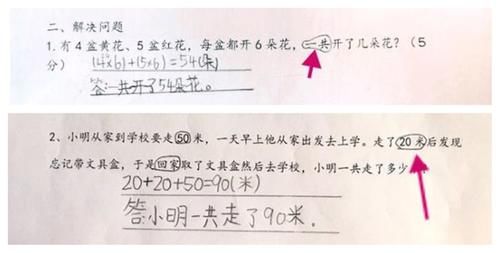 二、解决问题
1. 有4盆黄花、5盆红花，每盆都开6朵花，一共开了几朵花？（5
分）(4×6)+(5×6)=54(朵)
答:一共开了54朵花。
2、小明从家到学校要走50米，一天早上他从家出发去上学。走了20米后发现
忘记带文具盒，于是回家取了文具盒然后去学校，小明一共走了多少
20+20+50=90(米)
答小明一共走了90米.